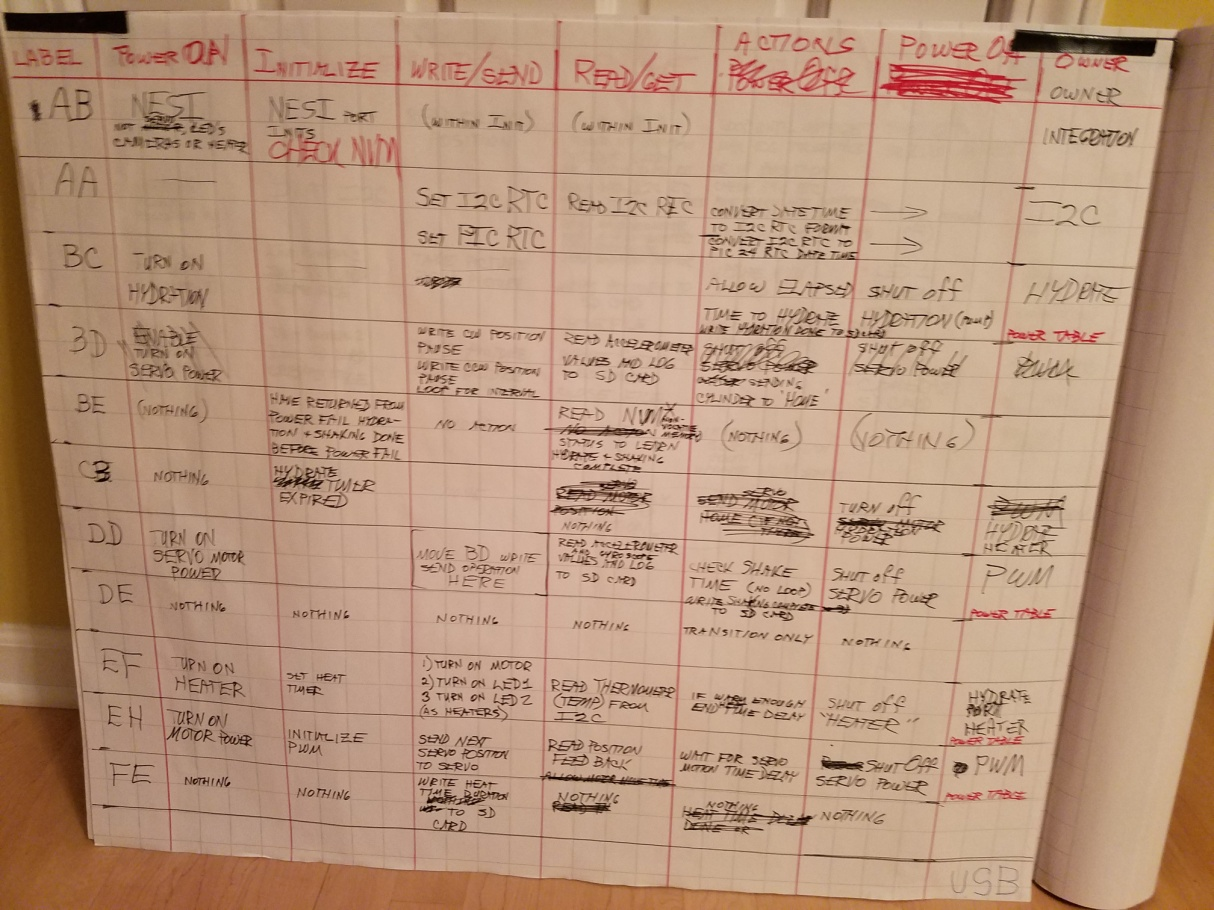 LABEL POWER ON INITIALIZE WRITE/SEND READ/GET ACTIONS POWER OFF OWNER
POWER OFF
OWNER
AB
NESI
NOT LED'S
CAMERAS OR HEATER
NESI PORT
INITS
CHECK NVM
(WITHIN INIT)
(WITHIN INIT)
INTEGRATION
AA
SET I2C RTC
SET PIC RTC
READ I2C RTC
CONVERT DATE TIME
TO I2C RTC FORMAT
CONVERT I2C RTC TO
PIC 24 RTC DATE TIME
→
→
I2C
BC
TURN ON
HYDRATION
ALLOW ELAPSED
TIME TO HYDRATE
WRITE HYDRATION DONE TO SD CARD
SHUT OFF
HYDRATION (PUMP)
HYDRATE
POWER TABLE
BD
ENABLE
TURN ON
SERVO POWER
WRITE CW POSITION
PAUSE
WRITE CCW POSITION
PAUSE
LOOP FOR INTERVAL
READ ACCELEROMETER
VALUES AND LOG
TO SD CARD
SHUT OFF
SERVO POWER
SENDING
CYLINDER TO "HOME"
SHUT OFF
SERVO POWER
BE
(NOTHING)
HAVE RETURNED FROM
POWER FAIL HYDRA-
TION + SHAKING DONE
BEFORE POWER FAIL
NO ACTION
READ NVM
NON-VOLATILE MEMORY
NO ACTION
STATUS TO LEARN
HYDRATE + SHAKING
COMPLETE
(NOTHING)
(NOTHING)
CB
NOTHING
HYDRATE
TIMER
EXPIRED
SERVO
READ MOTOR
POSITION
NOTHING
SERVO
SEND MOTOR
HOME (IF NOT
TURN OFF
POWER
PWM
HYDRATE
HEATER
DD
TURN ON
SERVO MOTOR
POWER
MOVE BD WRITE
SEND OPERATION
HERE
READ ACCELEROMETER
AND GYROSCOPE
VALUES AND LOG
TO SD CARD
CHECK SHAKE
TIME (NO LOOP)
WRITE SHAKING COMPLETE
TO SD CARD
SHUT OFF
SERVO POWER
PWM
POWER TABLE
DE
NOTHING
NOTHING
NOTHING
NOTHING
TRANSITION ONLY
NOTHING
EF
TURN ON
HEATER
SET HEAT
TIMER
1) TURN ON MOTOR
2) TURN ON LED1
3 TURN ON LED2
(AS HEATERS)
READ THERMOMETER
(TEMP) FROM
I2C
IF WARM ENOUGH
END TIME DELAY
SHUT OFF
"HEATER"
HYDRATE
HEATER
POWER TABLE
EH
TURN ON
MOTOR POWER
INITIALIZE
PWM
SEND NEXT
SERVO POSITION
TO SERVO
READ POSITION
FEED BACK
WAIT FOR SERVO
MOTION TIME DELAY
SHUT OFF
SERVO POWER
PWM
POWER TABLE
FE
NOTHING
NOTHING
WRITE HEAT
TIME DURATION
TO SD
CARD
NOTHING
NOTHING
HEAT TIME DELAY
DONE OR
NOTHING
USB